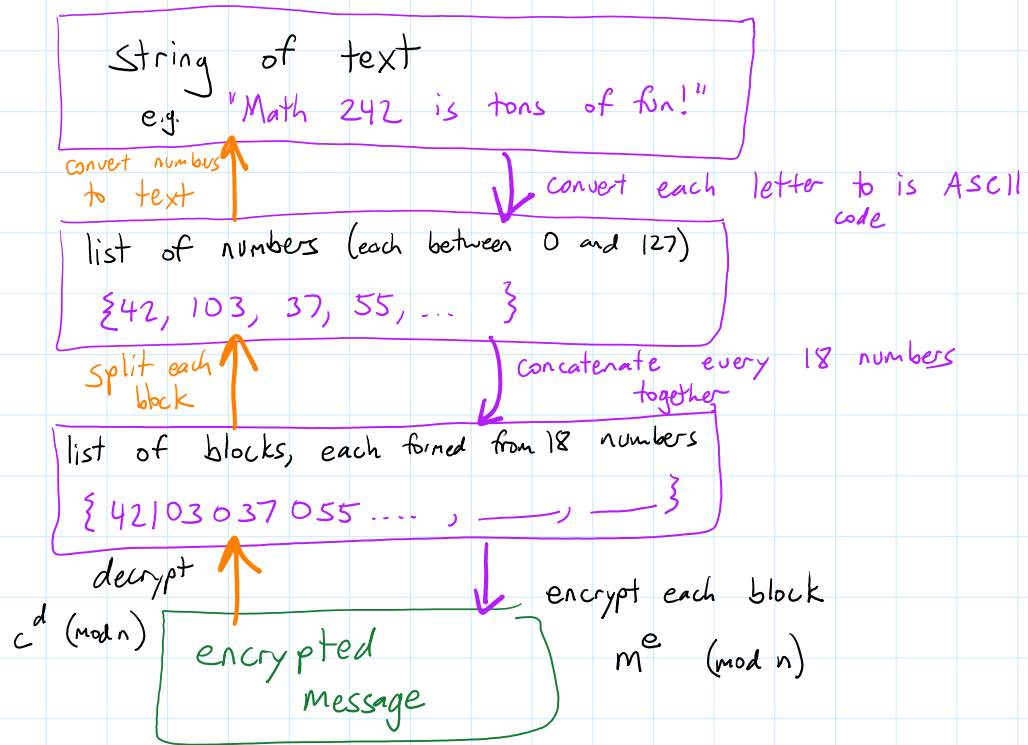 string of text
e.g. "Math 242 is tons of fun!"
convert numbers
to text
convert each letter to is ASCII
code
list of numbers (each between 0 and 127)
{42, 103, 37, 55, ... }
split each
block
concatenate every 18 numbers
together
list of blocks, each formed from 18 numbers
{ 42103037055 .... , ____, ____ }
decrypt
c^d (mod n)
encrypt each block
m^e (mod n)
encrypted
message